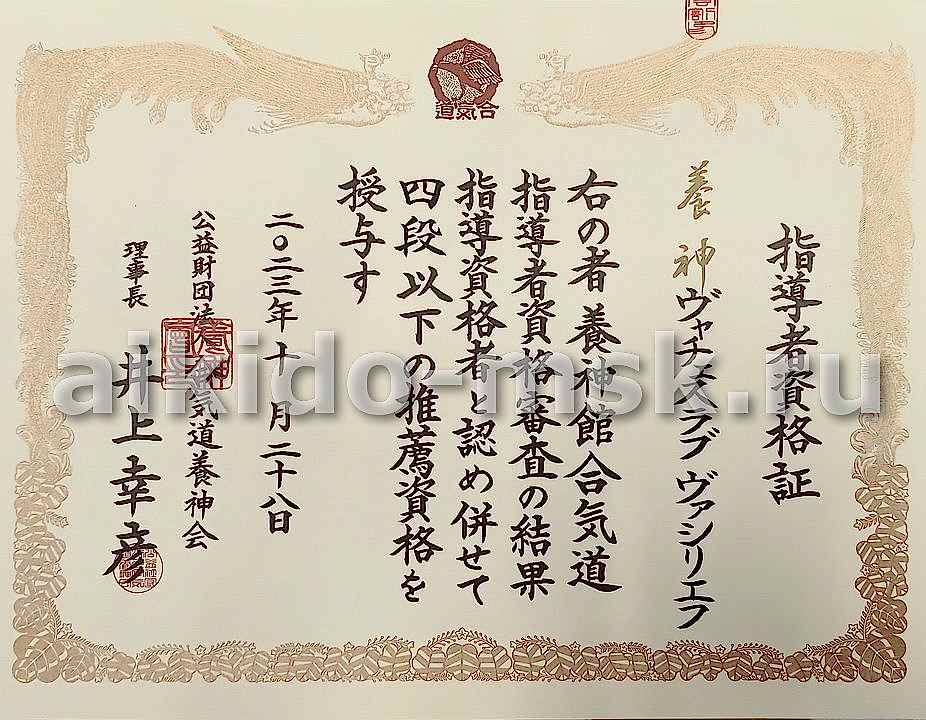 合氣道
指導者資格証
養神ヴァチェスラブ ヴァシリエフ
右の者養神館合気道
指導者資格審査の結果
指導資格者と認め併せて
四段以下の推薦資格を
授与す
二〇二三年十月二十八日
公益財団法人合気道養神会
理事長 井上幸彦
aikido-msk.ru